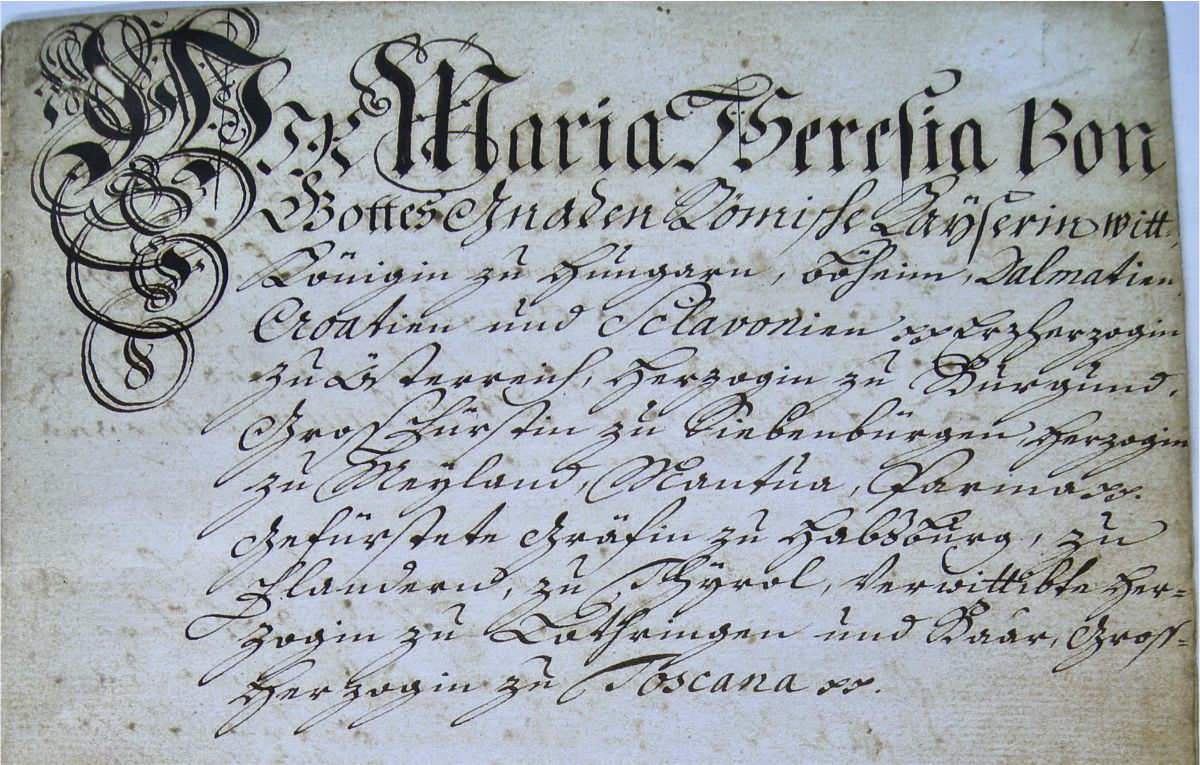 Wir Maria Theresia Von
Gottes Gnaden Römische Kayserin witt.
Königin zu Hungarn, Böheim, Dalmatien,
Croatien und Sclavonien xx Erzherzogin
zu Österreich, Herzogin zu Burgund,
Gros Fürstin zu Siebenbürgen, Herzogin
zu Meyland, Mantua, Parma xx.
Gefürstete Gräfin zu Habsburg, zu
Flandern, zu Thyrol, Verwittibte Her=
zogin zu Lothringen und Baar, Gross=
Herzogin zu Toscana xx.